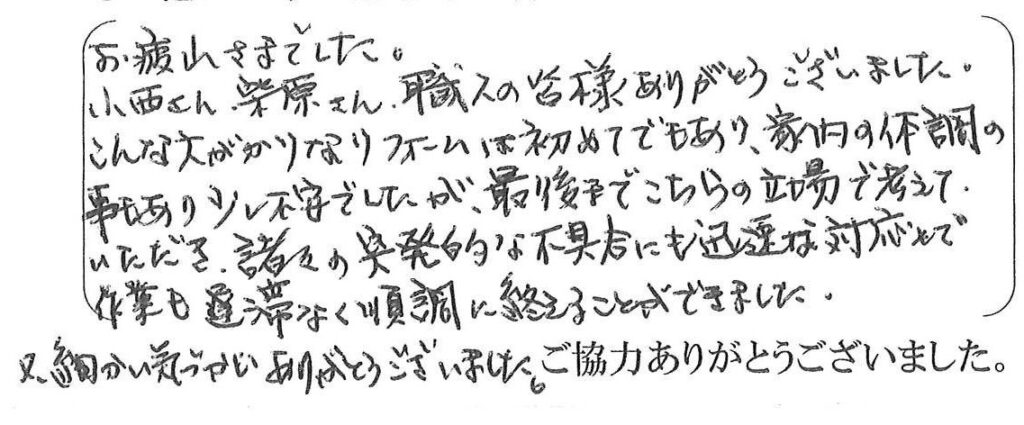 お疲れさまでした。
小西さん、柴原さん、職人の皆様ありがとうございました。
こんな大がかりなリフォームは初めてでもあり、家内の体調の
事もあり少し不安でしたが、最後までこちらの立場で考えて
いただき、諸々の突発的な不具合にも迅速な対応で
作業も遅滞なく順調に終えることができました。
又、細かい気づかいありがとうございました。ご協力ありがとうございました。